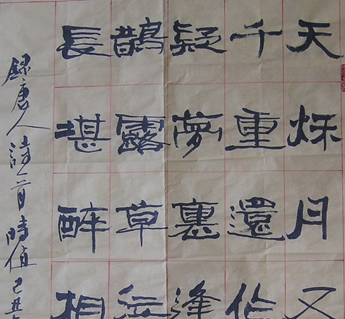 天秌月又
千重還作
疑夢裏逢
鵲露草
長堪醉相
録唐人詩一首時值己丑